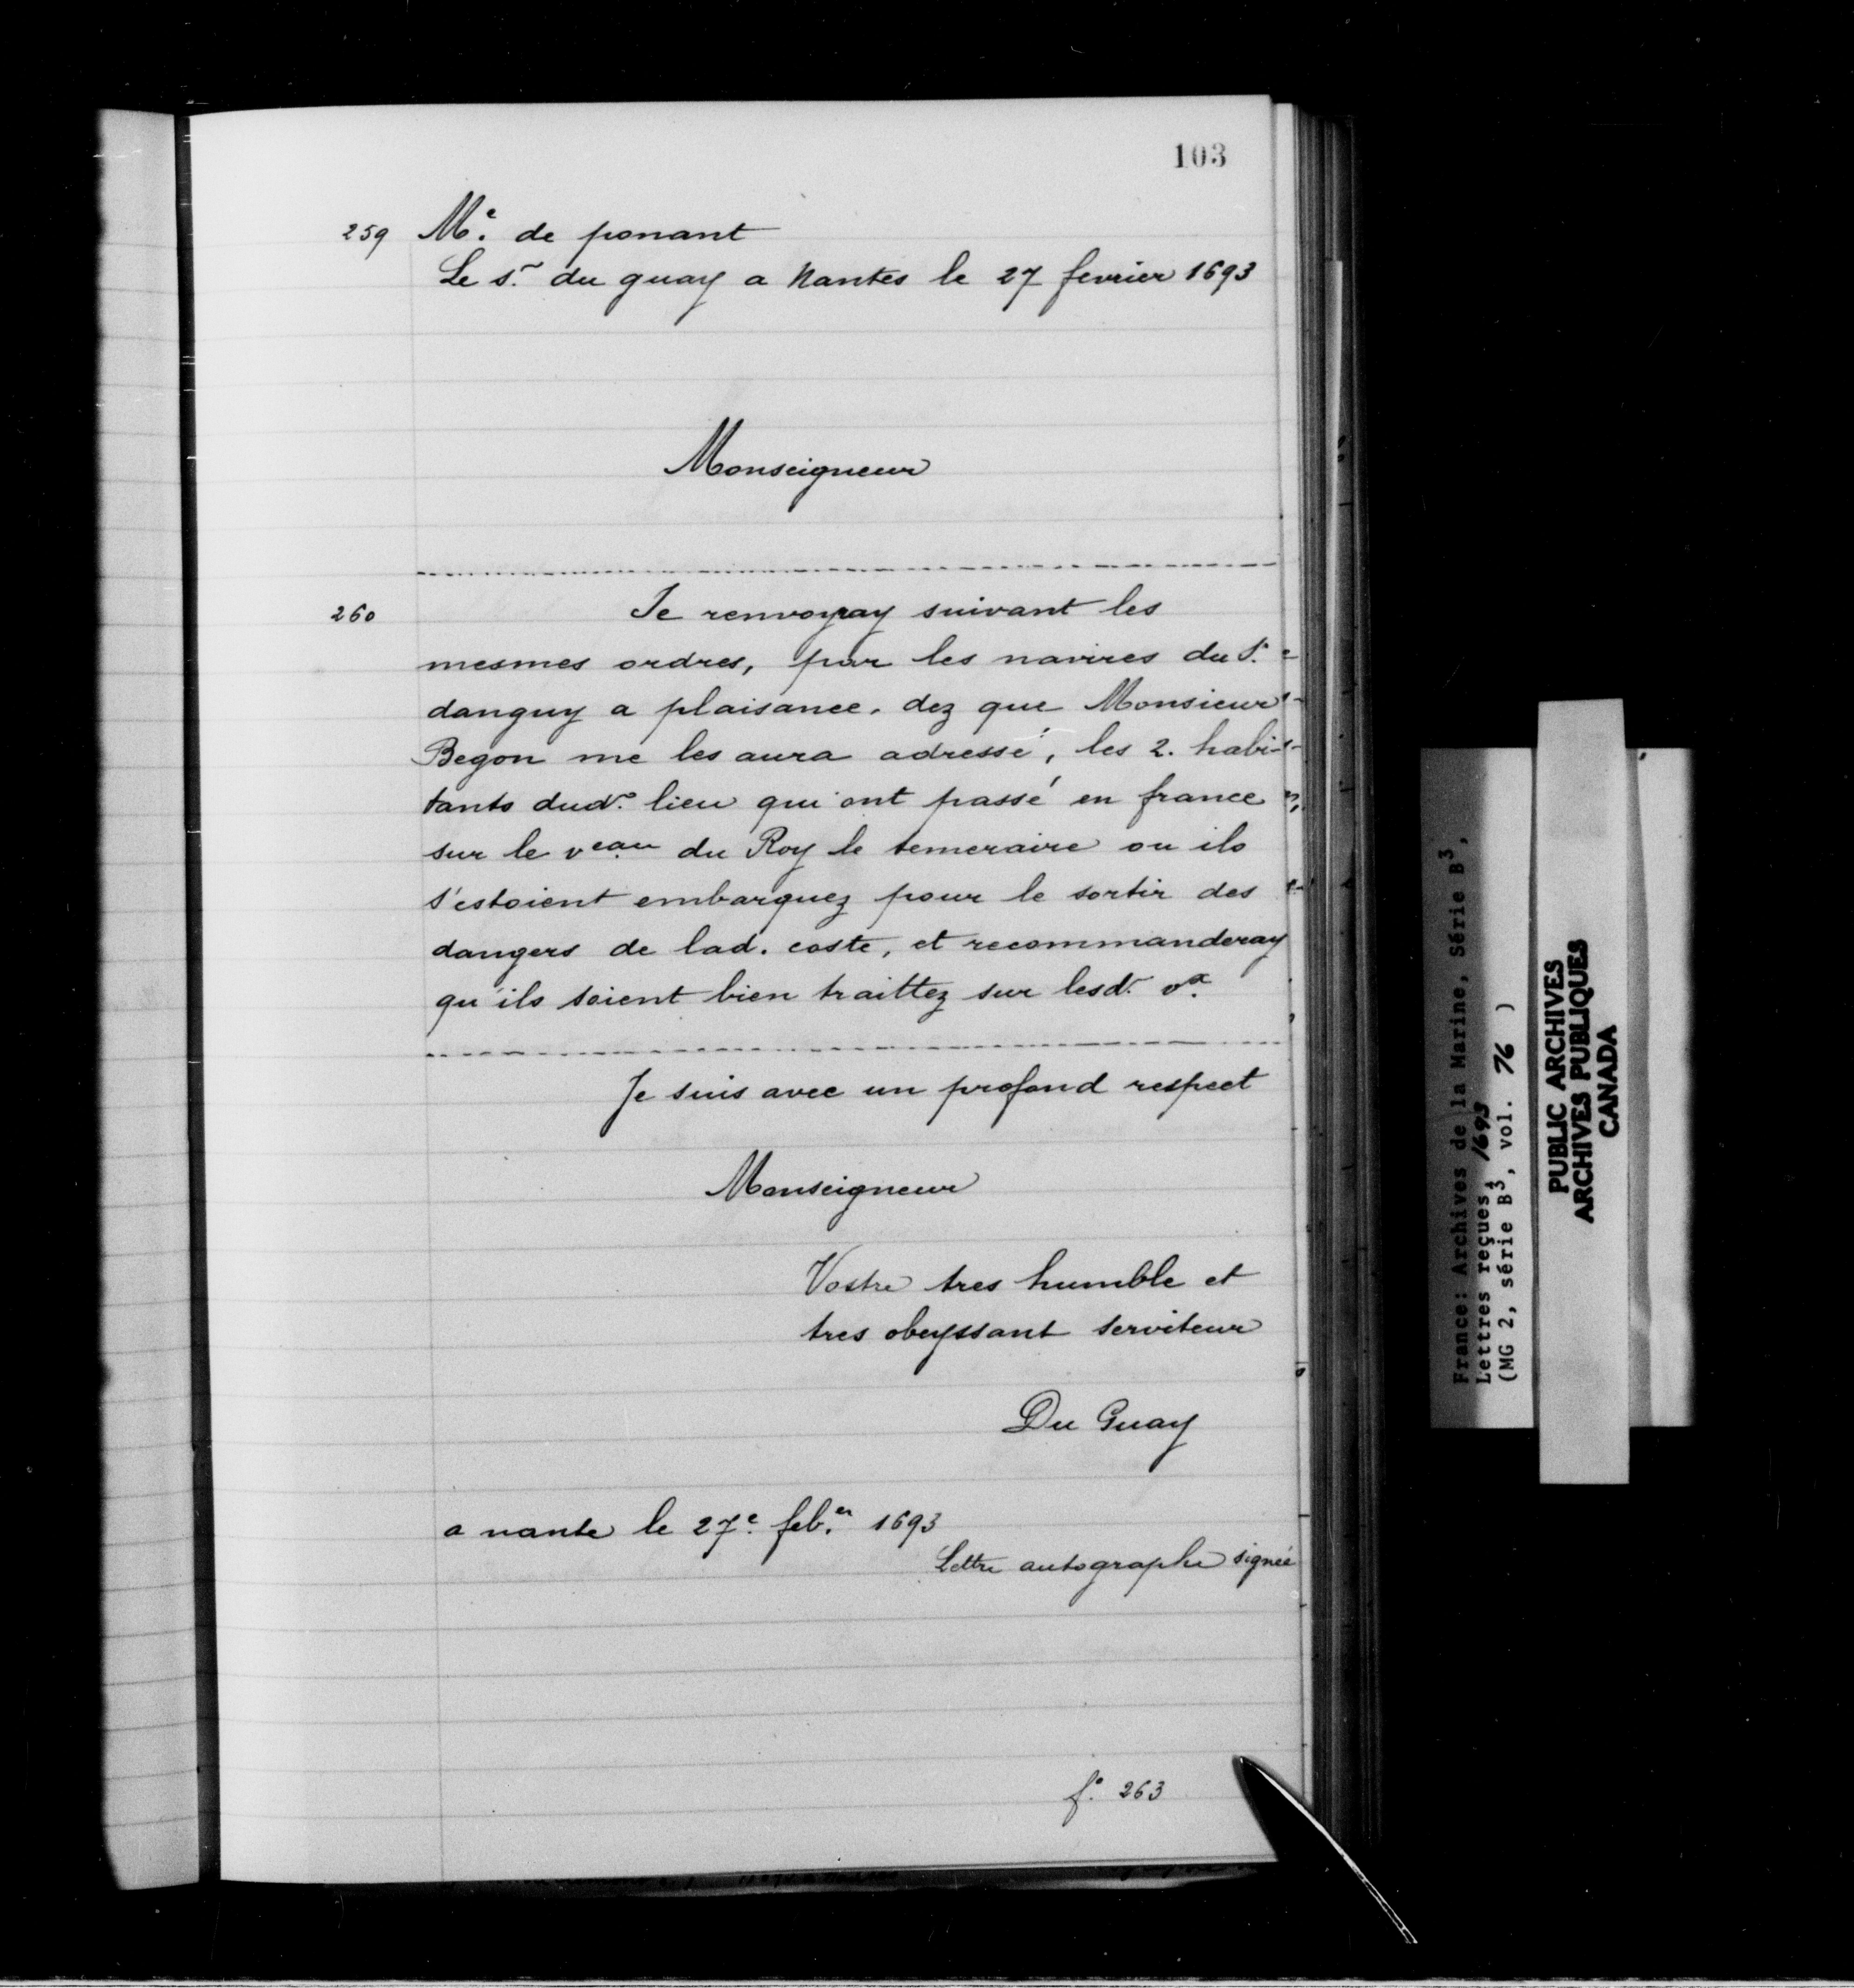 103
259 Mᵉ. de ponant
Le sʳ. du guay a Nantes le 27 fevrier 1693
Monseigneur
260 Je renvoyray suivant les
mesmes ordres, par les navires du Sʳ.
danguy a plaisance, dez que Monsieur
Begon me les aura adressé, les 2. habi-
tants dudᵗ. lieu qui ont passé en france
sur le vᵉᵃᵘ du Roy le temeraire ou ils
s'estoient embarquez pour le sortir des
dangers de lad. coste, et recommanderay
qu'ils soient bien traittez sur lesdᵗ. vˣ.
Je suis avec un profond respect
Monseigneur
Vostre tres humble et
tres obeyssant serviteur
Du Guay
a nante le 27ᵉ. febᵉʳ. 1693
Lettre autographe signée
f°. 263
France: Archives de la Marine, Série B³,
Lettres reçues, 1693
(MG 2, série B³, vol. 76 )
PUBLIC ARCHIVES
ARCHIVES PUBLIQUES
CANADA